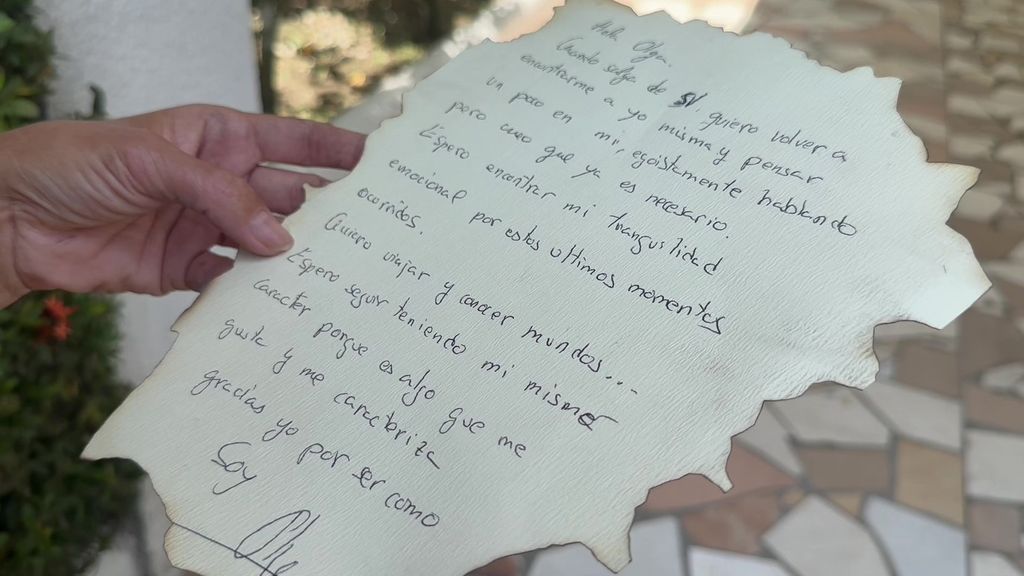 Hola Olga.
Cuando salga de SV quiero volver a
encontrarme a yo misma y pensar
un poco en mi, egoistamente hablando
pero creo que ya es necesario.
Espero encontrar mi tranquilidad
emocional por estos ultimos momentos
ocurridos.
Quiero viajar y conocer mundos...
Espero seguir teniendo mi mismo
caracter porque es algo que me
gusta y me caracteriza
gracias yo por ser como
Soy